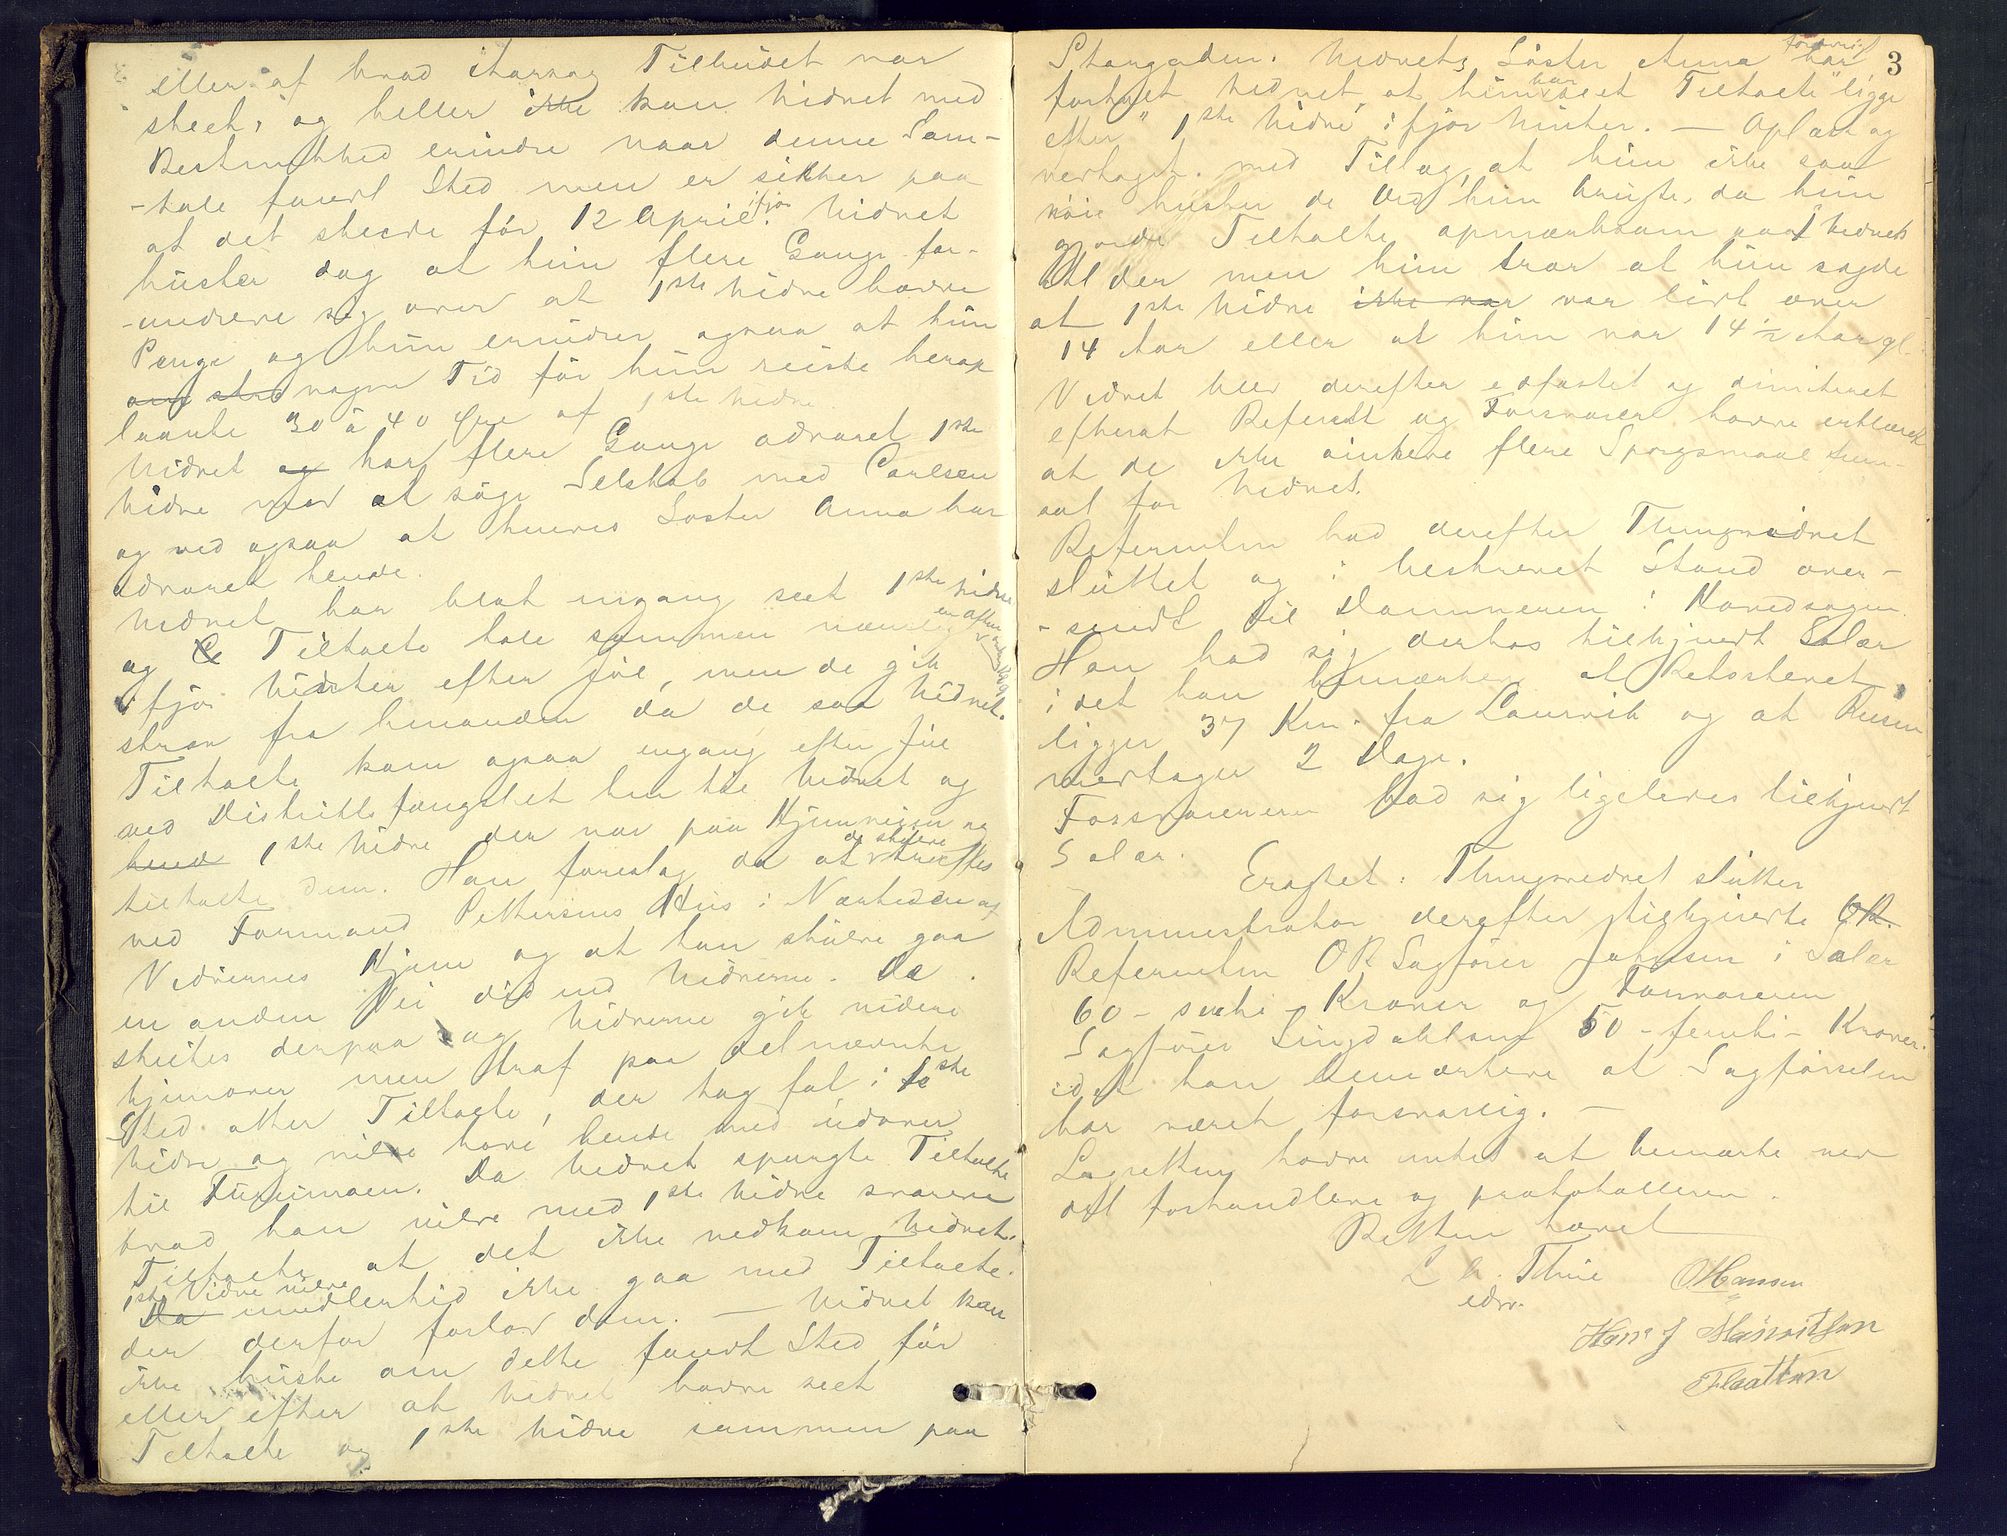 eller af hvad Aarsag Tilbudet var
skeet, og heller ikke kan Vidnet med
Bestemthed erindre naar denne Sam-
-tale fandt Sted men er sikker paa
at det skeede før 12 April ifjor. Vidnet
husker dog at hun flere Gange for-
-undrede sig over at 1ste Vidne havde
Penge og hun erindrer ogsaa at hun
nogen Tid før hun reiste herop
laante 30 à 40 Øre af 1ste Vidne
Vidnet og har flere Gange advaret 1ste
Vidne mod at søge Selskab med Carlsen
og ved ogsaa at hendes Søster Anna har
advaret hende.
Vidnet har blot engang seet 1ste Vidne
og Tiltalte tale sammen nemlig en Aften
ifjor Vinter efter Jul, men de gik
strax fra hinanden da de saa Vidnet.
Tiltalte kom ogsaa engang efter Jul
ved Distriktsfængslet hen til Vidnet og
hend 1ste Vidne der var paa Hjemveien og
tiltalte dem. Han foreslog da at de skulde træffes
ved Formand Pettersens Hus i Nærheden af
Vidnernes Hjem og at han skulde gaa
en anden Vei did end Vidnerne. De
skiltes derpaa og Vidnerne gik videre
hjemover men traf paa det nævnte
Sted atter Tiltalte, der tog fat i 1ste
Vidne og vilde have hende med udover
til Furumoen. Da Vidnet spurgte Tiltalte
hvad han vilde med 1ste Vidne svarede
Tiltalte at det ikke vedkom Vidnet.
1ste Vidne vilde
Da imidlertid ikke gaa med Tiltalte.
der derfor forlod dem. — Vidnet kan
ikke huske om dette fandt Sted før
eller efter at Vidnet havde seet
Tiltalte og 1ste Vidne sammen paa
3
Storgaden. Vidnets Søster Anna har forøvrigt
fortalt Vidnet, at hun har seet Tiltalte "ligge
efter" 1ste Vidne ifjor Vinter. — Oplæst og
vedtaget. med Tillæg, at hun ikke saa
nøie husker de Ord hun brugte, da hun
gjorde Tiltalte opmærksom paa 1 Vidnets
Alder men hun tror at hun sagde
at 1ste Vidne ikke var var lidt over
14 Aar eller at hun var 14 1/2 Aar gl.
Vidnet blev derefter edfæstet og dimiteret
efterat Referent og Forsvarer havde erklæret
at de ikke ønskede flere Spørgsmaal frem-
sat for Vidnet.
Referenten bad derefter Thingsvidnet
sluttet og i beskrevet Stand over-
-sendt til Dommeren i Hovedsagen
Han bad sig derhos tilkjendt Salær
idet han bemærker at Retsstedet
ligger 37 Km. fra Laurvik og at Reisen
medtager 2 Dage.
Forsvareren bad sig ligeledes tilkjendt
Salær.
Eragtet: Thingsvidnet sluttes
Administrator derefter tilkjendte OR.
Referenten OR Sagfører Johnsen i Salær
60 - sexti - Kroner og Forsvareren
Sagfører Lingdahlsen 50 - femti - Kroner.
idet han bemærkede at Sagførselen
har været forsvarlig. —
Lagretten havde intet at bemærke ved
det forhandlede og protokollerede.
Retten hævet
L A. Thue OHansen
edsv.
Hans J Mauritsen
Flaatten